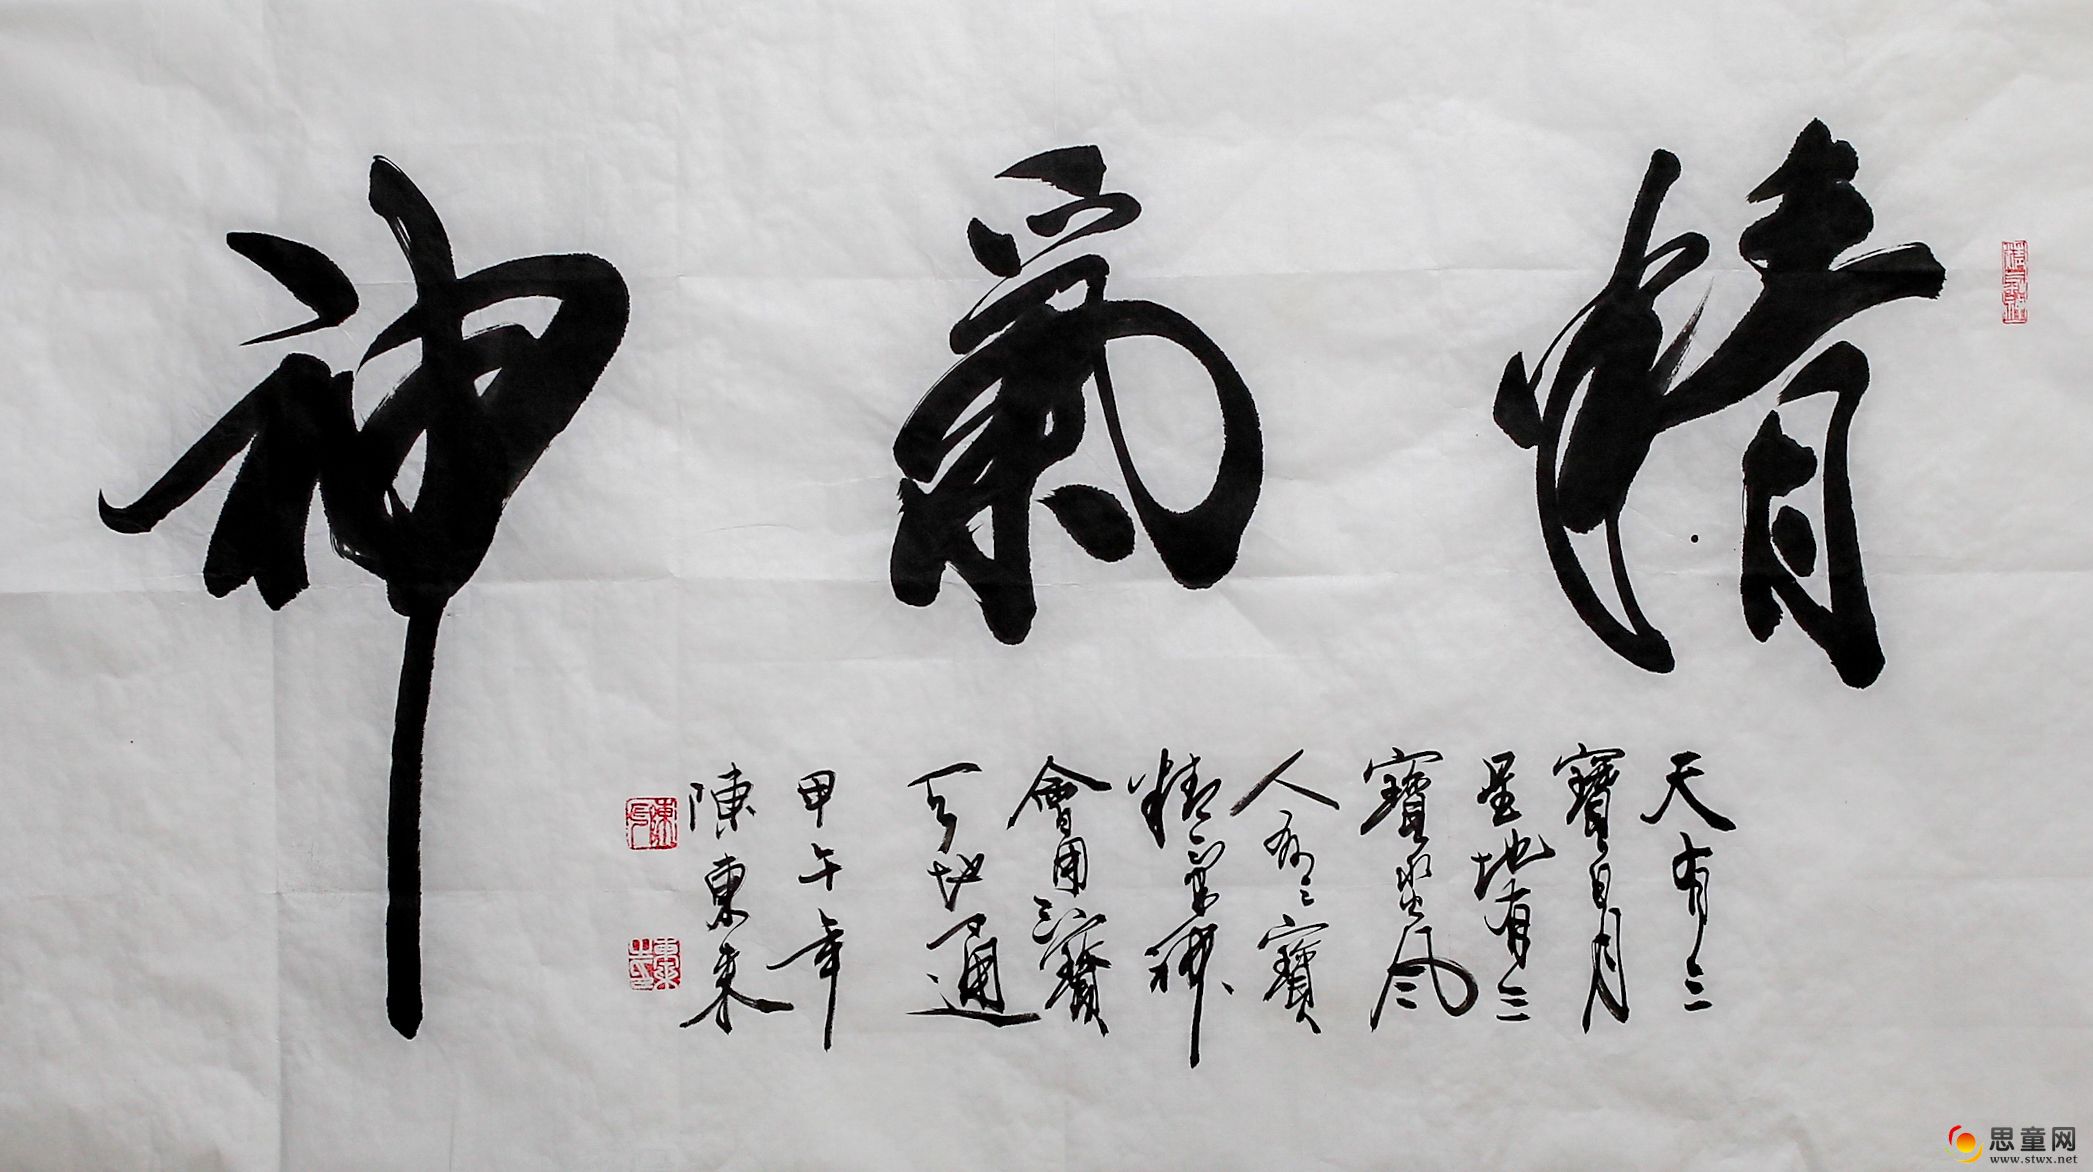 精氣神
天有三
寶日月
星地有三
寶水火風
人有三寶
精氣神
會用三寶
天地通
甲午年
陳東
思童网
www.stwx.net